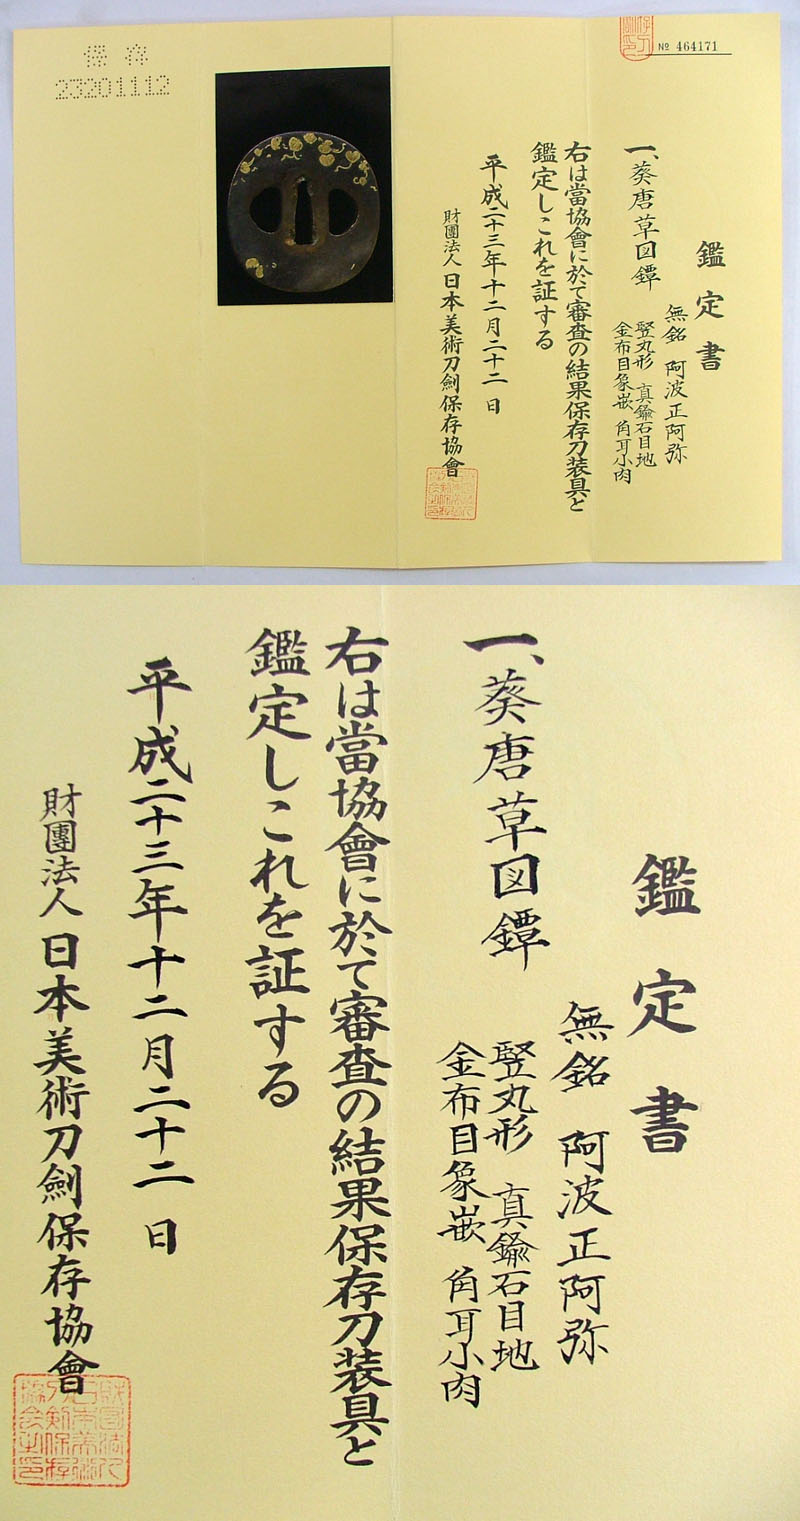 保存
23201112
№ 464171
鑑定書
無銘 阿波正阿弥
一、葵唐草図鐔
竪丸形 真鍮石目地
金布目象嵌 角耳小肉
右は當協會に於て審査の結果保存刀装具と
鑑定しこれを証する
平成二十三年十二月二十二日
財團法人 日本美術刀劍保存協會
鑑定書
無銘 阿波正阿弥
一、葵唐草図鐔
竪丸形 真鍮石目地
金布目象嵌 角耳小肉
右は當協會に於て審査の結果保存刀装具と
鑑定しこれを証する
平成二十三年十二月二十二日
財團法人 日本美術刀劍保存協會